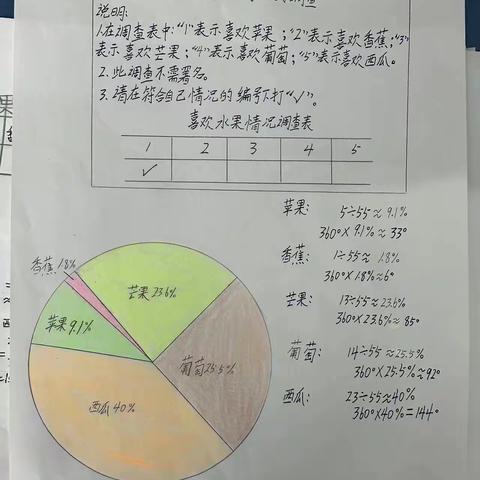 调查
说明:
1.在调查表中:“1”表示喜欢苹果;“2”表示喜欢香蕉;“3”
表示喜欢芒果;“4”表示喜欢葡萄;“5”表示喜欢西瓜。
2.此调查不需署名。
3.请在符合自己情况的编号下打“√”。
喜欢水果情况调查表
1 2 3 4 5
√
苹果: 5÷55≈9.1%
360°×9.1%≈33°
香蕉: 1÷55≈1.8%
360°×1.8%≈6°
芒果: 13÷55≈23.6%
360°×23.6%≈85°
葡萄: 14÷55≈25.5%
360°×25.5%≈92°
西瓜: 23÷55≈40%
360°×40%=144°
香蕉1.8%
芒果23.6%
苹果9.1%
葡萄25.5%
西瓜40%